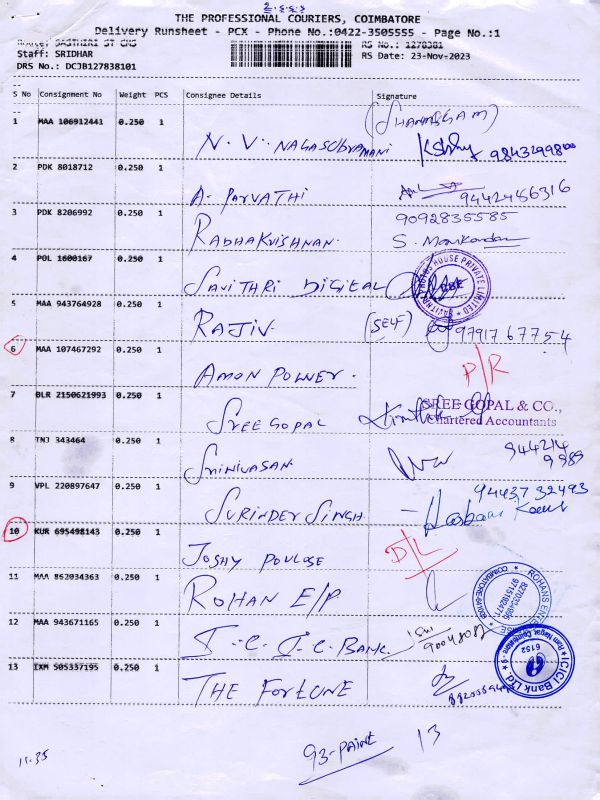 THE PROFESSIONAL COURIERS, COIMBATORE
Delivery Runsheet - PCX - Phone No.:0422-3505555 - Page No.:1
Route: SASTHIRI ST CMS
Staff: SRIDHAR
DRS No.: DCJB127838101
RS No.: 1278381
RS Date: 23-Nov-2023
S No Consignment No Weight PCS Consignee Details Signature
1 MAA 106912441 0.250 1 N.V. NAGASUBRAMANI (SHANMUGAM)
2 PDK 8018712 0.250 1 A. PARVATHI 9442486316
3 PDK 8206992 0.250 1 RADHAKRISHNAN. 9092835585 S. Manikandan
4 POL 1600167 0.250 1 SAVITHRI DIGITAL
5 MAA 943764928 0.250 1 RAJIV. (SELF) 9791767754
6 MAA 107467292 0.250 1 AMON POWER. P/R
7 BLR 2150621993 0.250 1 SREE GOPAL SREE GOPAL & CO., Chartered Accountants
8 TNJ 343464 0.250 1 SRINIVASAN. 944214 9989
9 VPL 220897647 0.250 1 SURINDER SINGH. 9443732493
10 KUR 695498143 0.250 1 JOSHY POULOSE D/L
11 MAA 862034363 0.250 1 ROHAN E/P
12 MAA 943671165 0.250 1 I.C.I.C. BANK.
ICICI Bank Ltd. Ram Nagar, Coimbatore - 9 6152
13 IXM 505337195 0.250 1 THE FORTUNE
93-PAINT 13
11.35